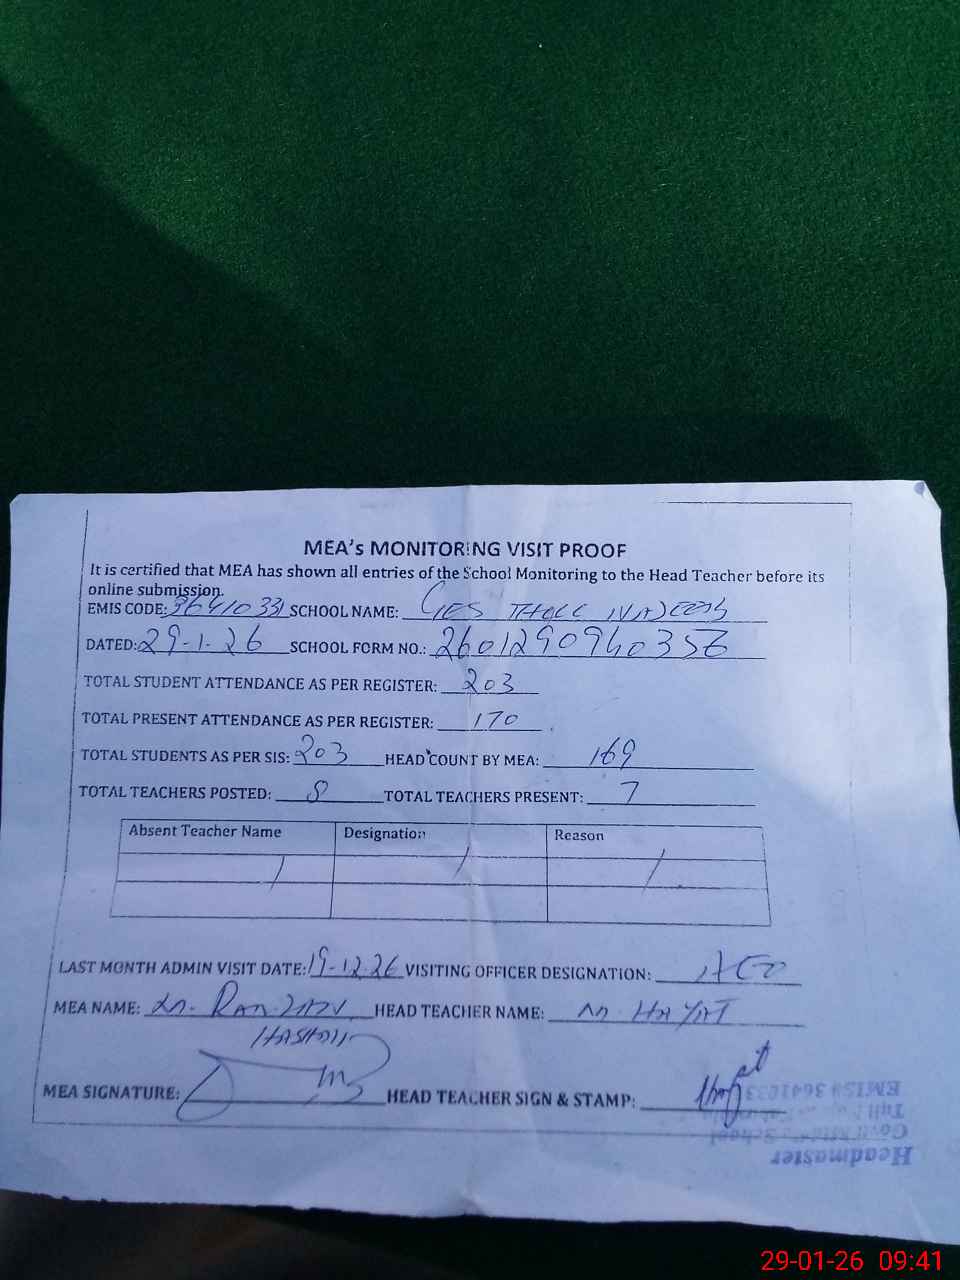 MEA's MONITORING VISIT PROOF
It is certified that MEA has shown all entries of the School Monitoring to the Head Teacher before its
online submission.
EMIS CODE: 36410331 SCHOOL NAME: GES
DATED: 29-1-26 SCHOOL FORM NO.: 260129094035
TOTAL STUDENT ATTENDANCE AS PER REGISTER: 203
TOTAL PRESENT ATTENDANCE AS PER REGISTER: 170
TOTAL STUDENTS AS PER SIS: 203 HEAD COUNT BY MEA: 169
TOTAL TEACHERS POSTED: 8 TOTAL TEACHERS PRESENT: 7
Absent Teacher Name Designation Reason
/ / /
LAST MONTH ADMIN VISIT DATE: 19-12-26 VISITING OFFICER DESIGNATION: AEO
MEA NAME: HEAD TEACHER NAME: M. HAYAT
MEA SIGNATURE: HEAD TEACHER SIGN & STAMP: Hayat
EMIS# 3641033
School
Headmaster
29-01-26 09:41